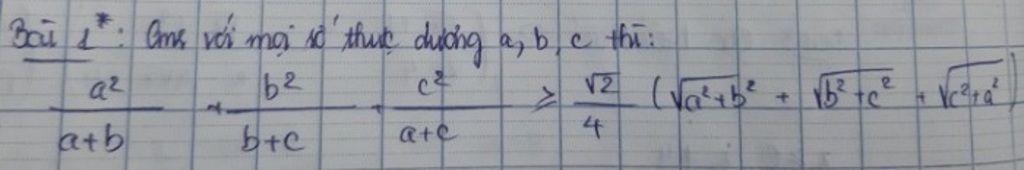 Bài 1*: Cmr với mọi số thực dương a, b, c thì:
a²/(a+b) + b²/(b+c) + c²/(a+c) ≥ √2/4 (√(a²+b²) + √(b²+c²) + √(c²+a²))